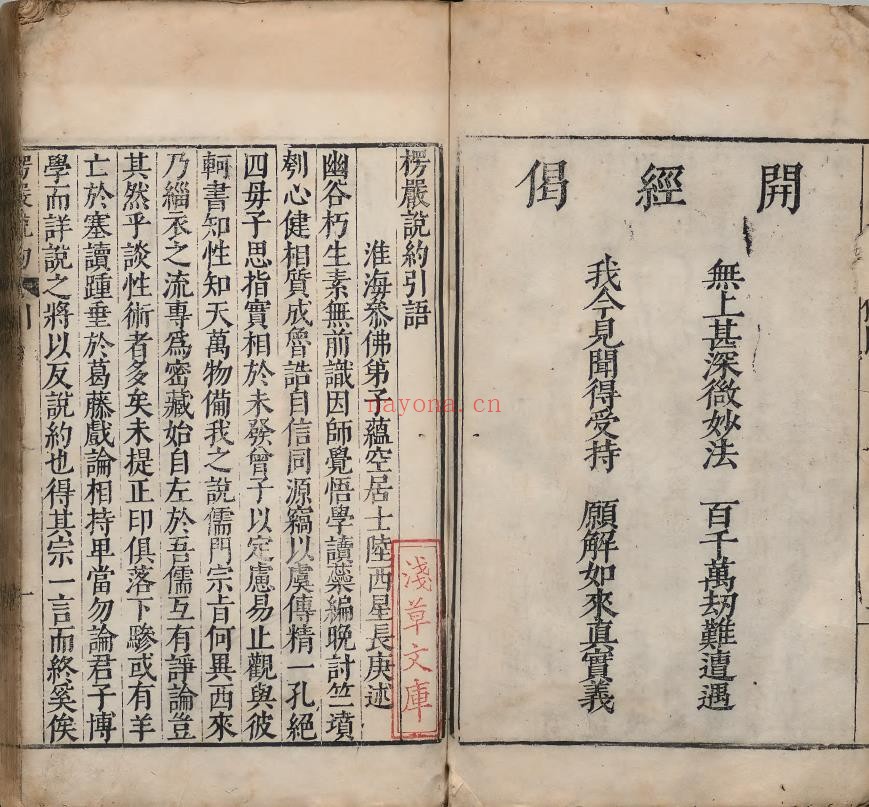 開經偈
無上甚深微妙法 百千萬劫難遭遇
我今見聞得受持 願解如來真實義
楞嚴說約引語
淮海叅佛弟子蘊空居士陸西星長庚述
幽谷朽生素無前識因師覺悟學讀蘂編晚討竺墳
刳心健相質成魯誥自信同源竊以虞傳精一孔絕
四毋子思指實相於未發曾子以定慮易止觀與彼
軻書知性知天萬物備我之說儒門宗旨何異西來
乃緇衣之流專爲密藏始自左於吾儒互有諍論豈
其然乎談性術者多矣未提正印俱落下驂或有羊
亡於塞讀踵垂於葛藤戲論相持畢當勿論君子博
學而詳說之將以反說約也得其宗一言而終奚俟
楞嚴說約 引 一
淺草文庫
nayona.cn